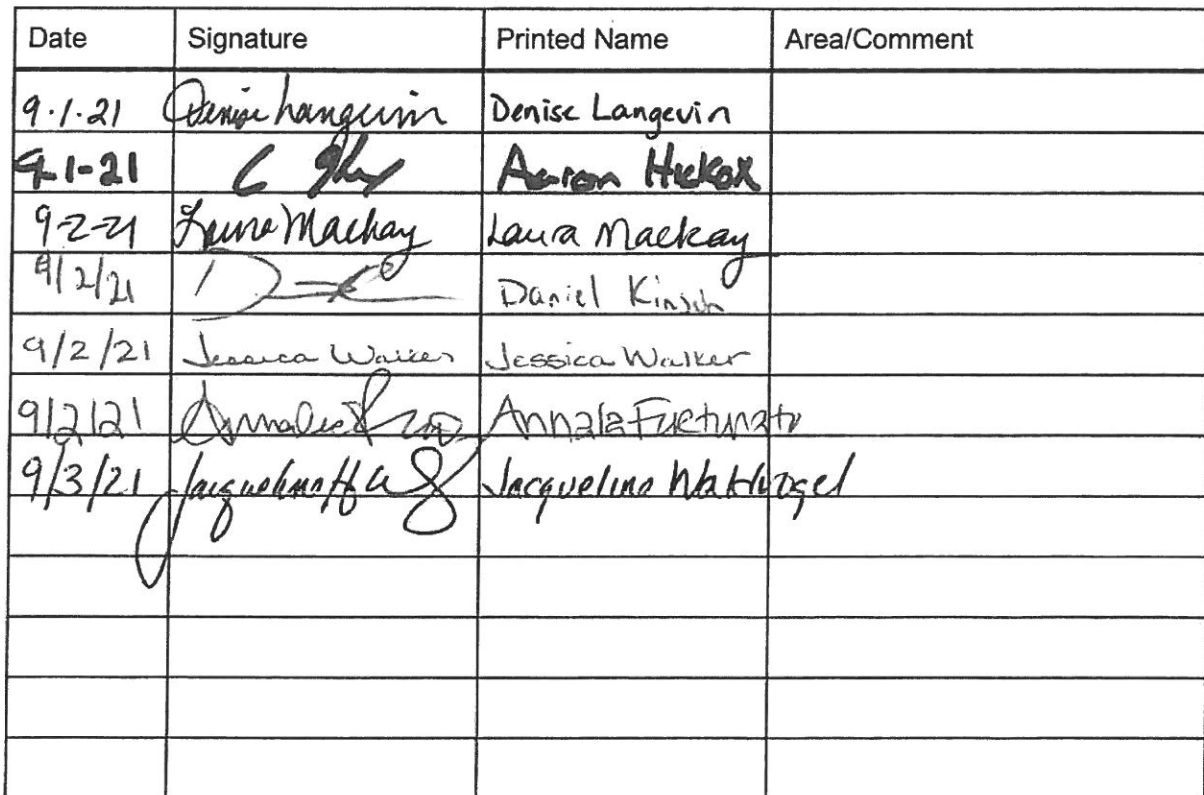 Date Signature Printed Name Area/Comment
9.1.21 Denise Langevin Denise Langevin
9-1-21 Aaron Hickox
9-2-21 Laura Mackay Laura Mackay
9/2/21 Daniel Kinsch
9/2/21 Jessica Walker Jessica Walker
9/2/21
9/3/21 Jacqueline Jacqueline